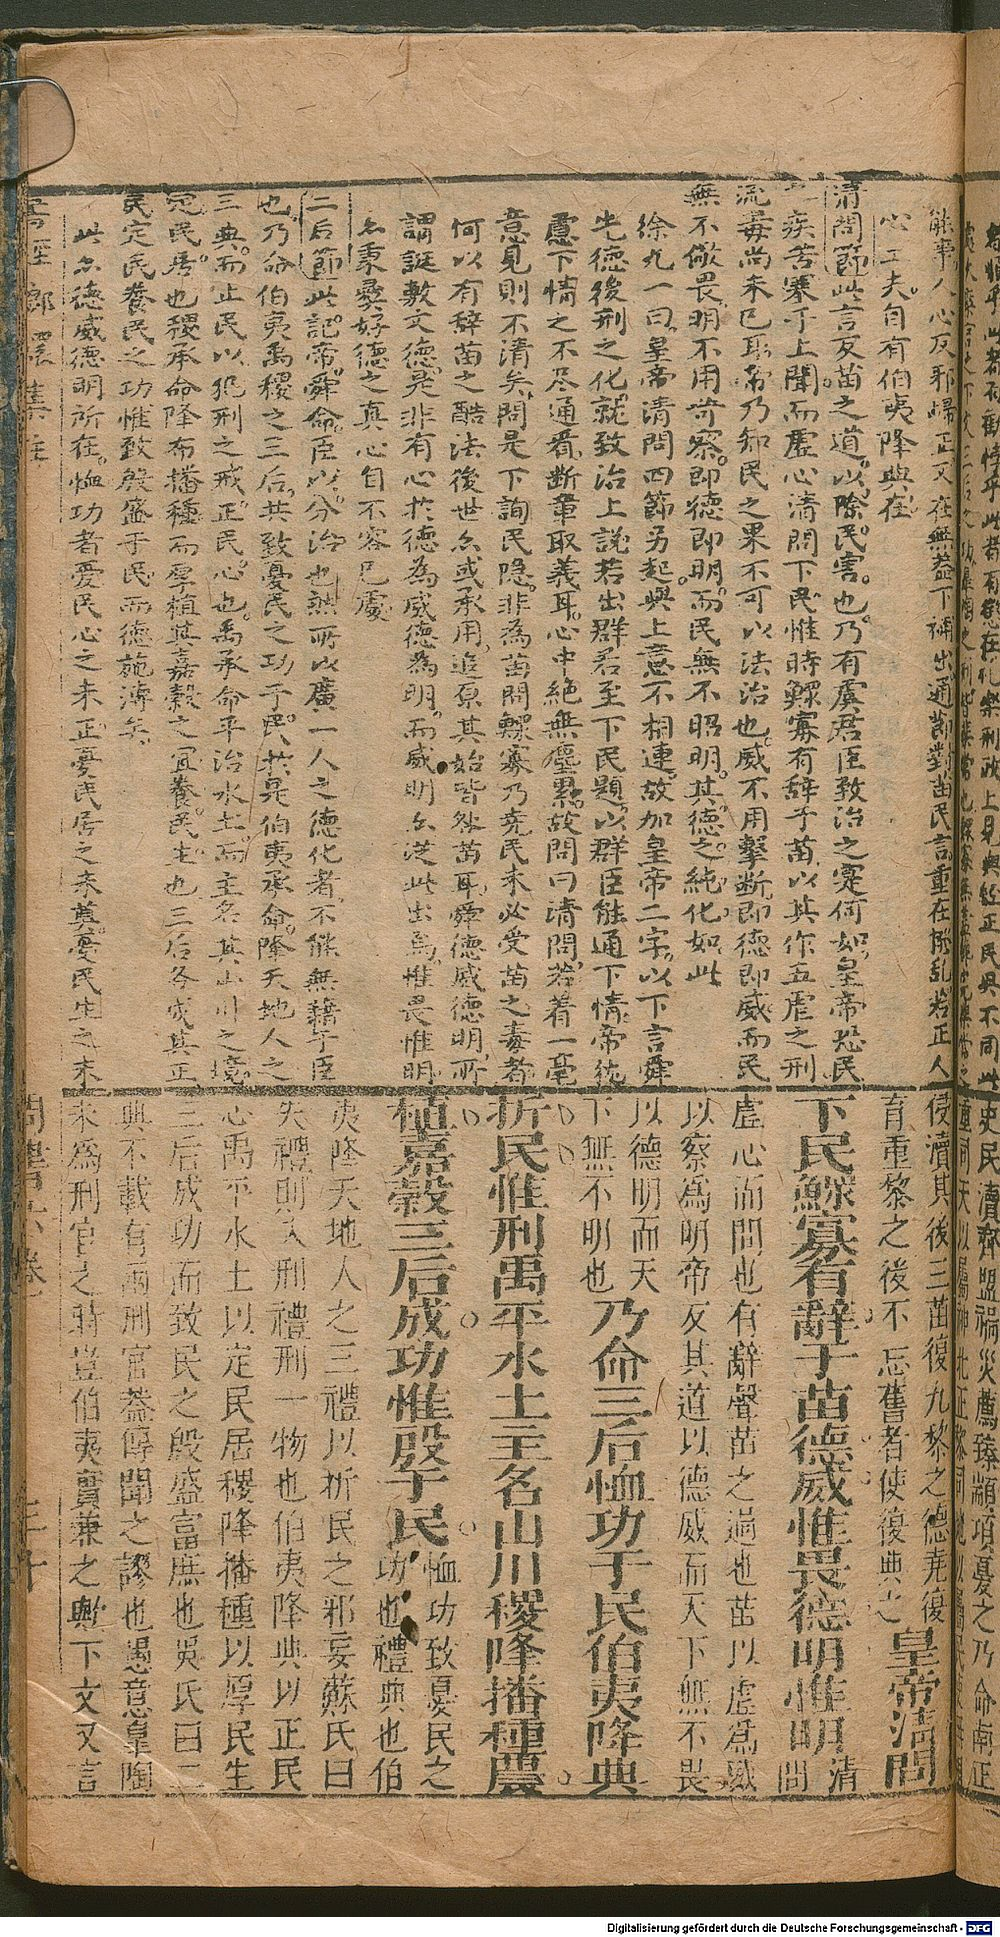 能寧人心反邪歸正又在無蓋下補出通節對苗民言重在撥亂若正人
心工夫自有伯夷降典在
清問節此言反苗之道以除民害也乃有虞君臣致治之寔何如皇帝恐民
之疾苦寒于上聞而虛心清問下民惟時鰥寡有辞于苗以其作五虐之刑
流毒尚未已耳帝乃知民之果不可以法治也威不用擊断即德即威而民
無不儆畏明不用苛察即德即明而民無不昭明其德之純化如此
徐九一曰皇帝清問四節另起與上意不相連故加皇帝二字以下言舜
先德後刑之化就致治上説若出群君至下民題以群臣能通下情帝
慮下情之不尽通看断章取義耳心中絶無塵累故問曰清問若着一毫
意見則不清矣問是下詢民隐非為苗問鰥寡乃尭民未必受苗之毒者
何以有辞苗之酷法後世亦或承用追原其始皆然苗耳舜德威德明所
謂誕敷文德是非有心於德為威德為明而威明亦從此出焉惟畏惟明
亦秉彜好德之真心自不容已處
三后節此記帝舜命臣以分治也然所以廣一人之德化者不能無藉于臣
也乃命伯夷禹稷之三后共致憂民之功于民共是伯夷承命降天地人之
三典而止民以犯刑之戒正民心也禹承命平治水土而主名其山川之境
定民居也稷承命降布播種而厚植其嘉穀之宜養民生也三后各成其正
民定民養民之功惟致殷盛于民而德施溥矣
此亦德威德明所在恤功者愛民心之未正憂民居之未奠憂民生之未
侵瀆其後三苗復九黎之德堯復
育重黎之後不忘舊者使復典之皇帝清問
下民鰥寡有辭于苗德威惟畏德明惟明清問
虛心而問也有辭聲苗之過也苗以虐爲威
以察爲明帝反其道以德威而天下無不畏
以德明而天下無不明也乃命三后恤功于民伯夷降典
折民惟刑禹平水土主名山川稷降播種農
植嘉穀三后成功惟殷于民恤功致憂民之功也禮典也伯
夷降天地人之三禮以折民之邪妄蘇氏曰
失禮則入刑禮刑一物也伯夷降典以正民
心禹平水土以定民居稷降播種以厚民生
三后成功而致民之殷盛富庶也吳氏曰二
典不載有兩刑官蓋傳聞之謬也愚意皐陶
未爲刑官之時豈伯夷實兼之歟下文又言
書經
周書六卷
三十
Digitalisierung gefördert durch die Deutsche Forschungsgemeinschaft - DFG